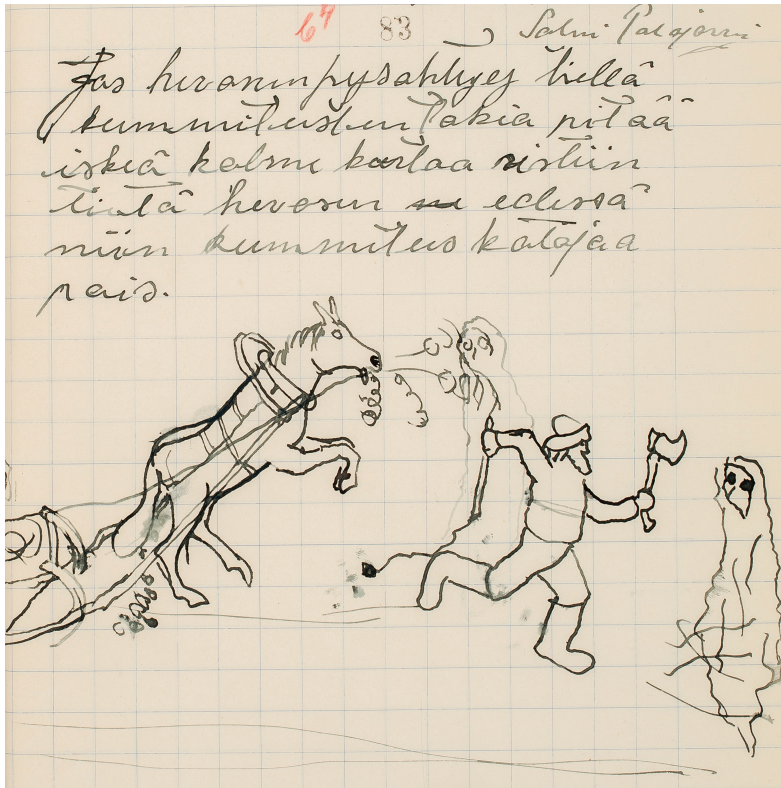 83
Jos hevonen pysähtyy tiellä
kummitusten takia pitää
iskeä kolme kertaa ristiin
tietä hevosen edessä
niin kummitus katojaa
pois.